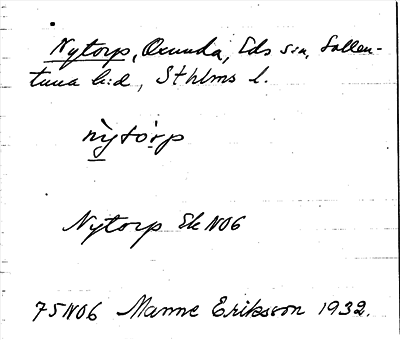 Nytorp, Oxunda, Eds sn, Sollen-
tuna h:d, Sthlms l.
nỳtó̱rp
Nytorp Ek NO6
75NO6 Manne Eriksson 1932.